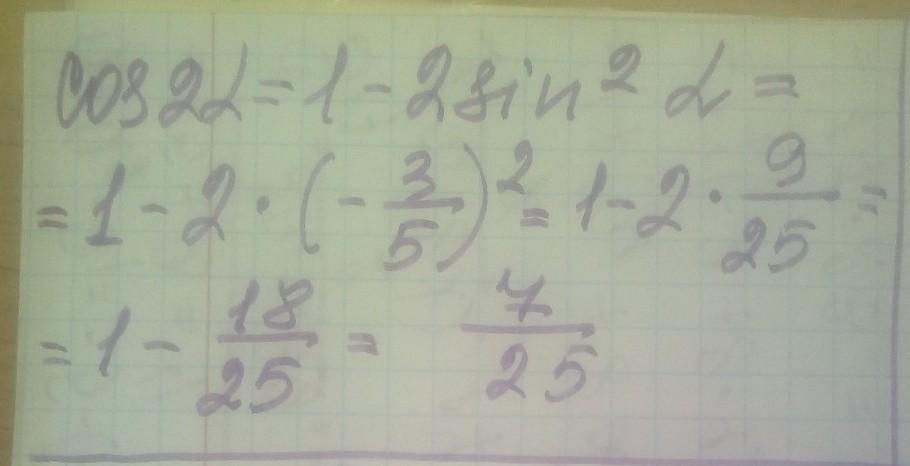 cos2α = 1 - 2sin² α =
= 1 - 2 · (-3/5)² = 1 - 2 · 9/25 =
= 1 - 18/25 = 7/25